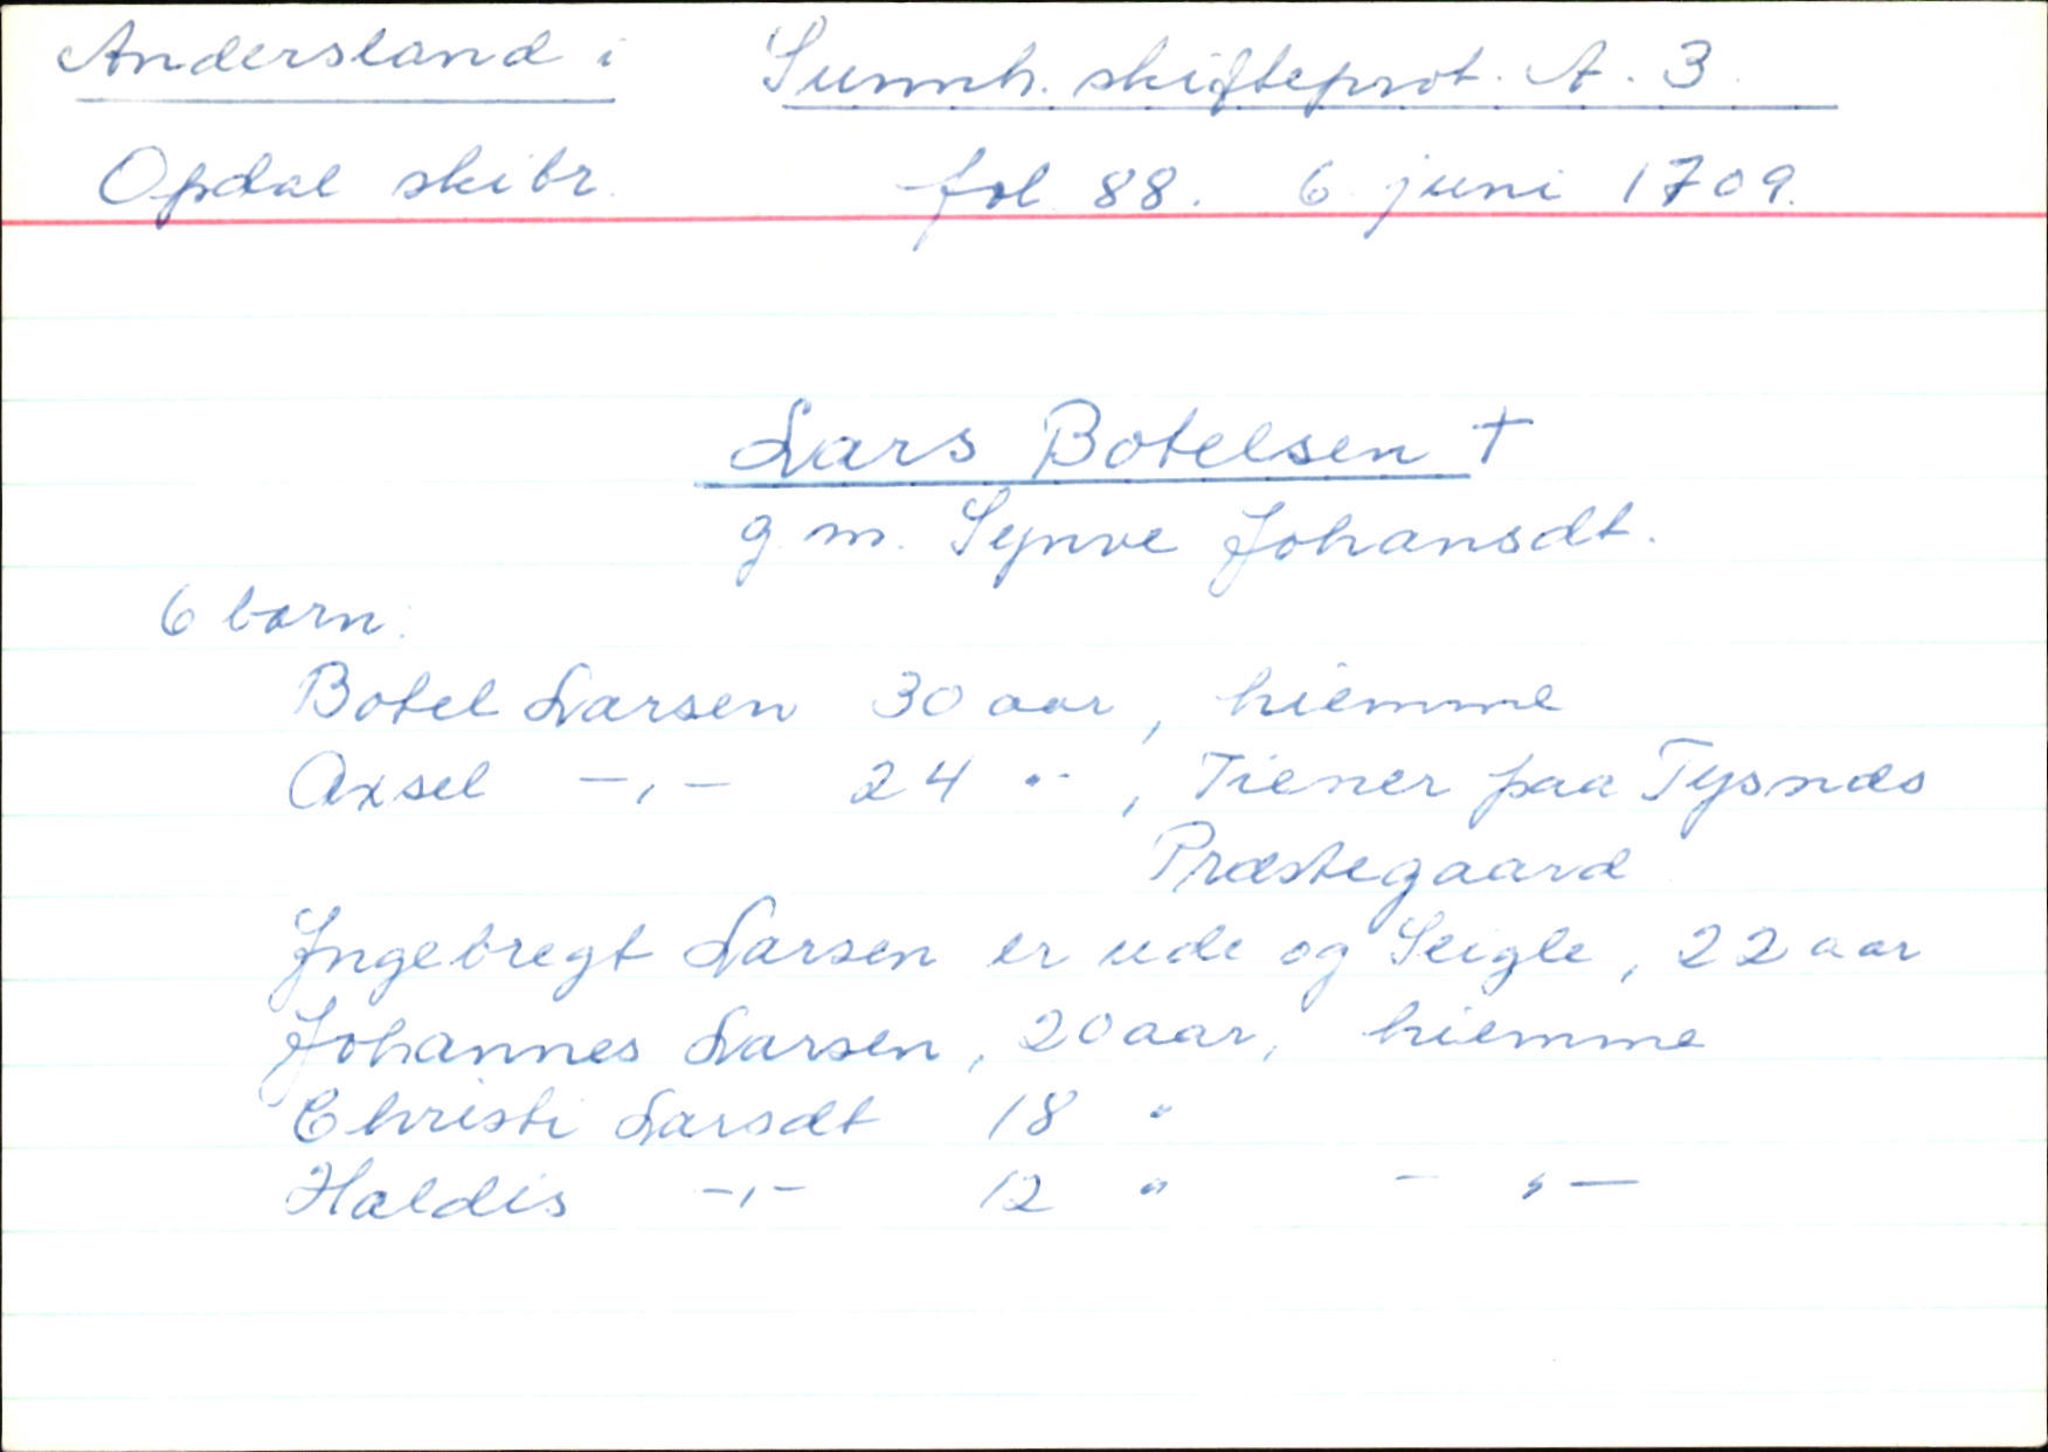 Andersland i Sunnh. skifteprot. A. 3.
Opdal skibr. fol. 88. 6 juni 1709.
Lars Botelsen †
g. m. Synve Johansdt.
6 barn:
Botel Larsen 30 aar, hiemme
Axsel -,,- 24 ", Tiener paa Tysnæs
Præstegaard
Ingebregt Larsen er ude og Seigle, 22 aar
Johannes Larsen, 20 aar, hiemme
Christi Larsdt 18 "
Haldis -,,- 12 " -,,-